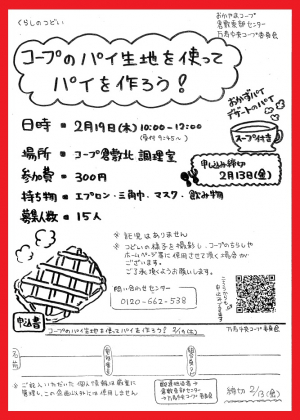 くらしのつどい
おかやまコープ
倉敷支部センター
万寿中央コープ委員会
コープのパイ生地を使って
パイを作ろう!
おかずパイ
デザートのパイ
スープ付き
日時 = 2月19日(木) 10:00-12:00
(受付 9:45~)
場所 = コープ倉敷北 調理室
参加費 = 300円
申し込み締切
2月13日(金)
持ち物 = エプロン・三角巾・マスク・飲み物
募集人数 = 15人
※ 託児はありません
※ つどいの様子を撮影し、コープのちらしや
ホームページ等に使用させて頂く場合が
ございます。
ご了承くださいようお願いします。
問い合わせセンター
0120-662-538
申込書
コープのパイ生地を使ってパイを作ろう! 2/19(木)
万寿中央コープ委員会
名前
※ ご記入いただいた個人情報は厳重に
管理し、この企画以外には使用しません
配達担当者→
倉敷支部センター
→万寿中央コープ委員会
締切 2/13(金)